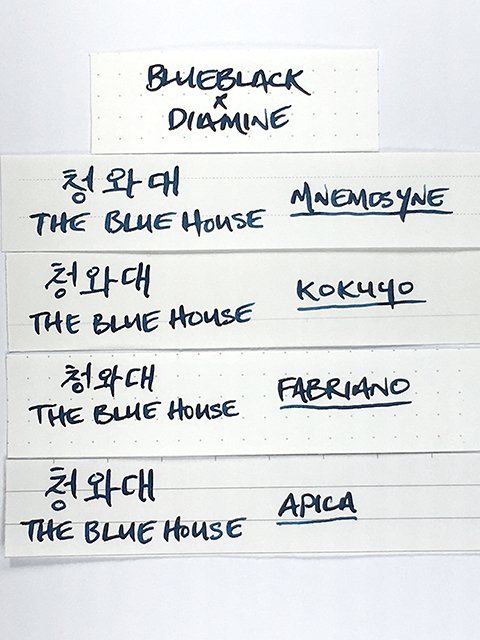 BLUEBLACK
x
DIAMINE
청와대
THE BLUE HOUSE
MNEMOSYNE
청와대
THE BLUE HOUSE
KOKUYO
청와대
THE BLUE HOUSE
FABRIANO
청와대
THE BLUE HOUSE
APICA